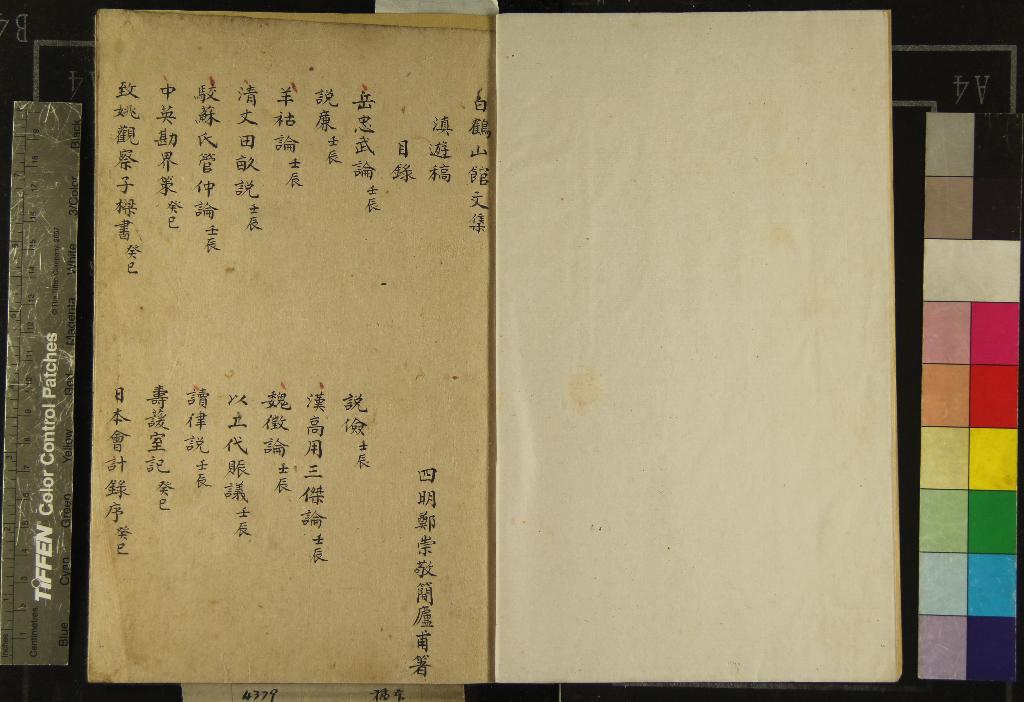 白鶴山館文集
滇遊稿
四明鄭崇敬簡廬甫著
目錄
岳忠武論壬辰
說儉壬辰
說廉壬辰
漢高用三傑論壬辰
羊祜論壬辰
魏徵論壬辰
清丈田畝說壬辰
以工代賑議壬辰
駁蘇氏管仲論壬辰
讀律說壬辰
中英勘界策癸巳
壽護室記癸巳
致姚觀察子樑書癸巳
日本會計錄序癸巳
4379
TIFFEN Color Control Patches
© The Tiffen Company, 2007
Inches
Centimetres
Blue
Cyan
Green
Yellow
Red
Magenta
White
3/Color
Black
A4
A4
B4